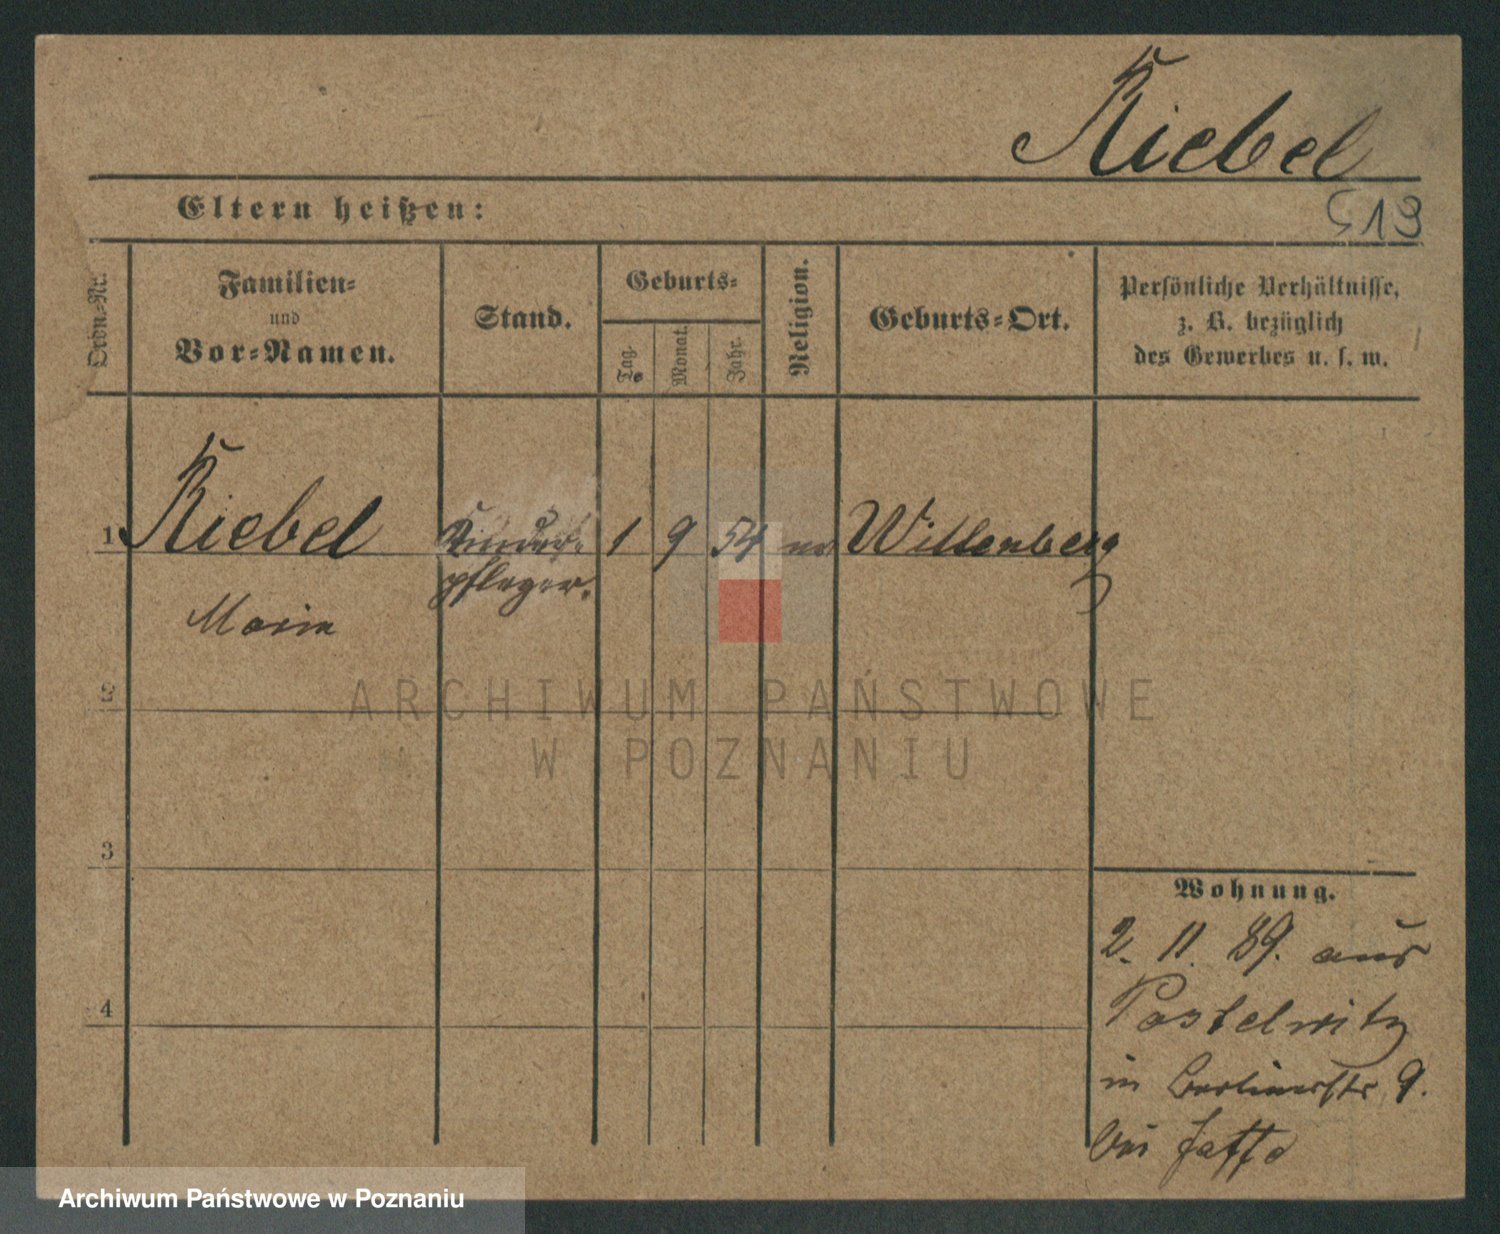 Riebel
519
Eltern heißen:
Ordn.-Nr.
Familien-
und
Vor-Namen.
Stand.
Geburts-
Tag.
Monat.
Jahr.
Religion.
Geburts-Ort.
Persönliche Verhältnisse,
z. B. bezüglich
des Gewerbes u. s. w.
1
Riebel
Kinder-
pfleger.
1 9 54 ev Wittenberg
Marie
2
ARCHIWUM PAŃSTWOWE
W POZNANIU
3
Wohnung.
2. 11. 89. aus
Postelwitz
4
in Berlinerstr 9.
bei Jaffe
Archiwum Państwowe w Poznaniu